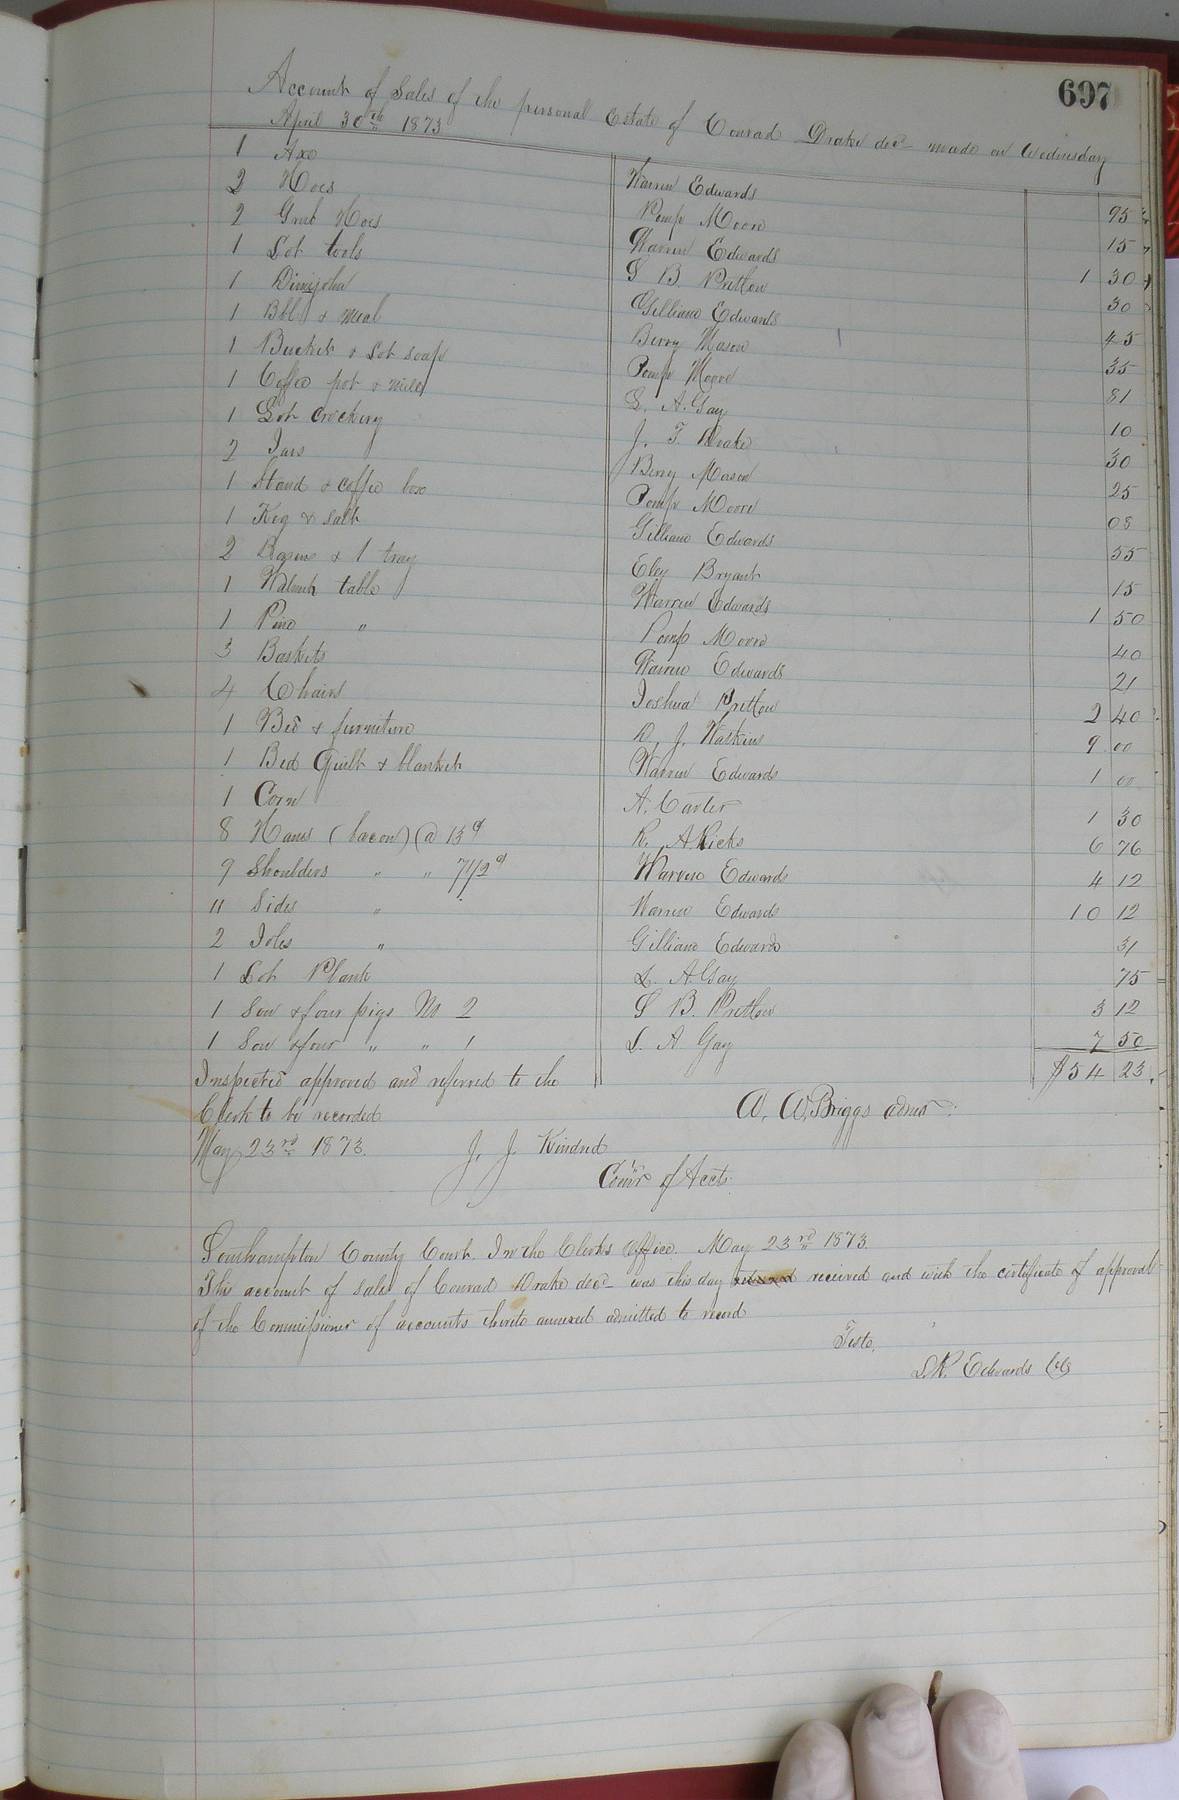 697
Account of Sales of the personal Estate of Conrad Drake decd made on Wednesday
April 30th 1873
1 Axe Warren Edwards 95
2 Hoes Pomp Moore 15
2 Grub Hoes Warren Edwards 1 30
1 Lot tools S B. Pretlow 30
1 Dimijohn Gilliam Edwards 45
1 Bbl & meal Berry Mason 35
1 Bucket & Lot soap Pomp Moore 81
1 Coffee pot & mill L. A. Gay 10
1 Lot crockery J. T. Drake 30
2 Jars Berry Mason 25
1 Stand & coffee box Pomp Moore 08
1 Keg & salt Gilliam Edwards 55
2 Basins & 1 tray Eley Bryant 15
1 Walnut table Warren Edwards 1 50
1 Pine " Pomp Moore 40
3 Baskets Warren Edwards 21
4 Chairs Joshua Pretlow 2 40
1 Bed & furniture J. Haskins 9 00
1 Bed Quilt & blanket Warren Edwards 1 00
1 Corn A. Carter 1 30
8 Hams (bacon) @ 13 c R. A. Ricks 6 76
9 Shoulders " " 7 1/2 c Warren Edwards 4 12
11 Sides " Warren Edwards 10 12
2 Joles " Gilliam Edwards 31
1 Lot Plank L. A. Gay 75
1 Sow & four pigs No 2 S B. Pretlow 3 12
1 Sow & four " " 1 L. A Gay 7 50
$54 23.
Inspected approved and referred to the
Clerk to be recorded W. W. Briggs admr
May 23rd 1873. J. J. Kindred
Comr of Accts.
Southampton County Court. In the Clerks Office. May 23rd 1873
This account of sales of Conrad Drake decd was this day received and with the certificate of approval
of the Commissioner of accounts thereto annexed admitted to record
Teste,
L. R. Edwards Clk